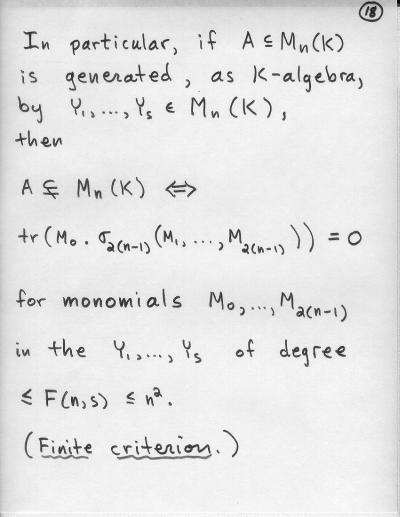 18
In particular, if A ⊆ Mₙ(K)
is generated, as K-algebra,
by Y₁,...,Yₛ ∈ Mₙ(K),
then
A ⊊ Mₙ(K) ⇔
tr(M₀ · σ₂₍ₙ₋₁₎(M₁,...,M₂₍ₙ₋₁₎)) = 0
for monomials M₀,...,M₂₍ₙ₋₁₎
in the Y₁,...,Yₛ of degree
≤ F(n,s) ≤ n².
(Finite criterion.)